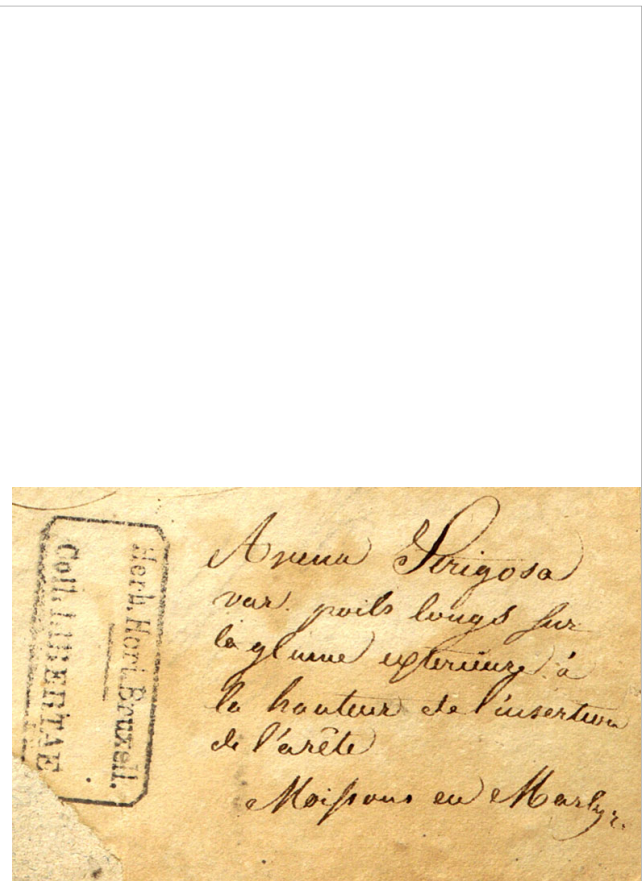 Herb. Hort. Bruxell.
Coll. LIBERTAE
Avena Strigosa
var. poils longs sur
la glume exterieure à
la hauteur de l'insertion
de l'arête
Moissons en